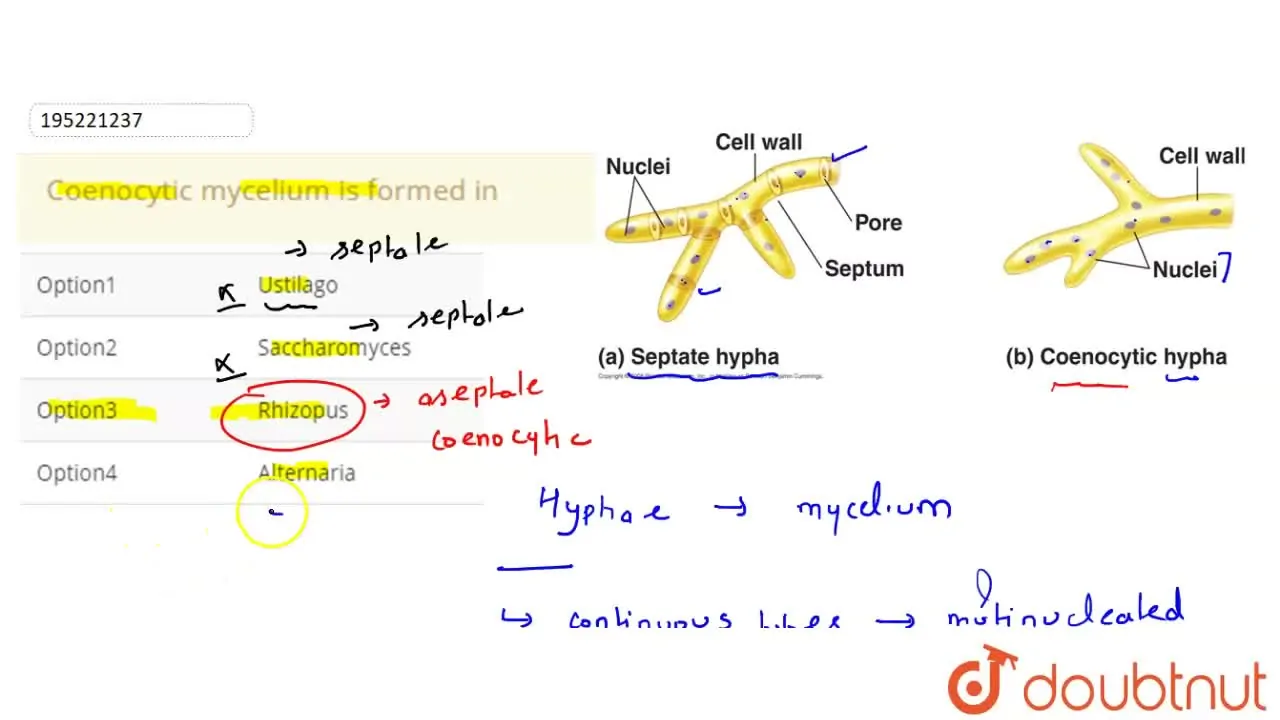 195221237
Coenocytic mycelium is formed in
Option1 Ustilago → septate
Option2 Saccharomyces → septate
Option3 Rhizopus → aseptate
coenocytic
Option4 Alternaria
Cell wall
Nuclei
Pore
Septum
(a) Septate hypha
Cell wall
Nuclei
(b) Coenocytic hypha
Hyphae → mycelium
↳ continuous tubes → mutinucleated
doubtnut